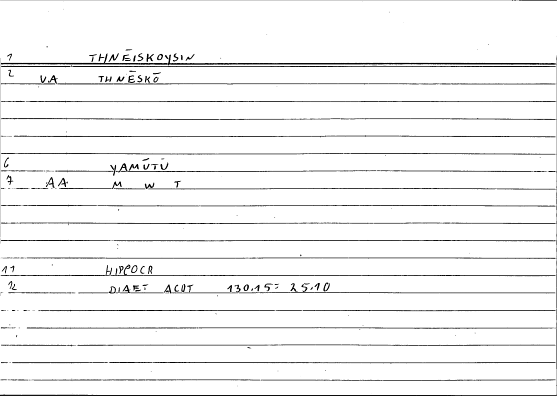 1 THNĒISKOYSIN
2 VA THNĒSKŌ
6 YAMŪTŪ
7 AA M W T
11 HIPPOCR
12 DIAET ACUT 130.15= 25.10